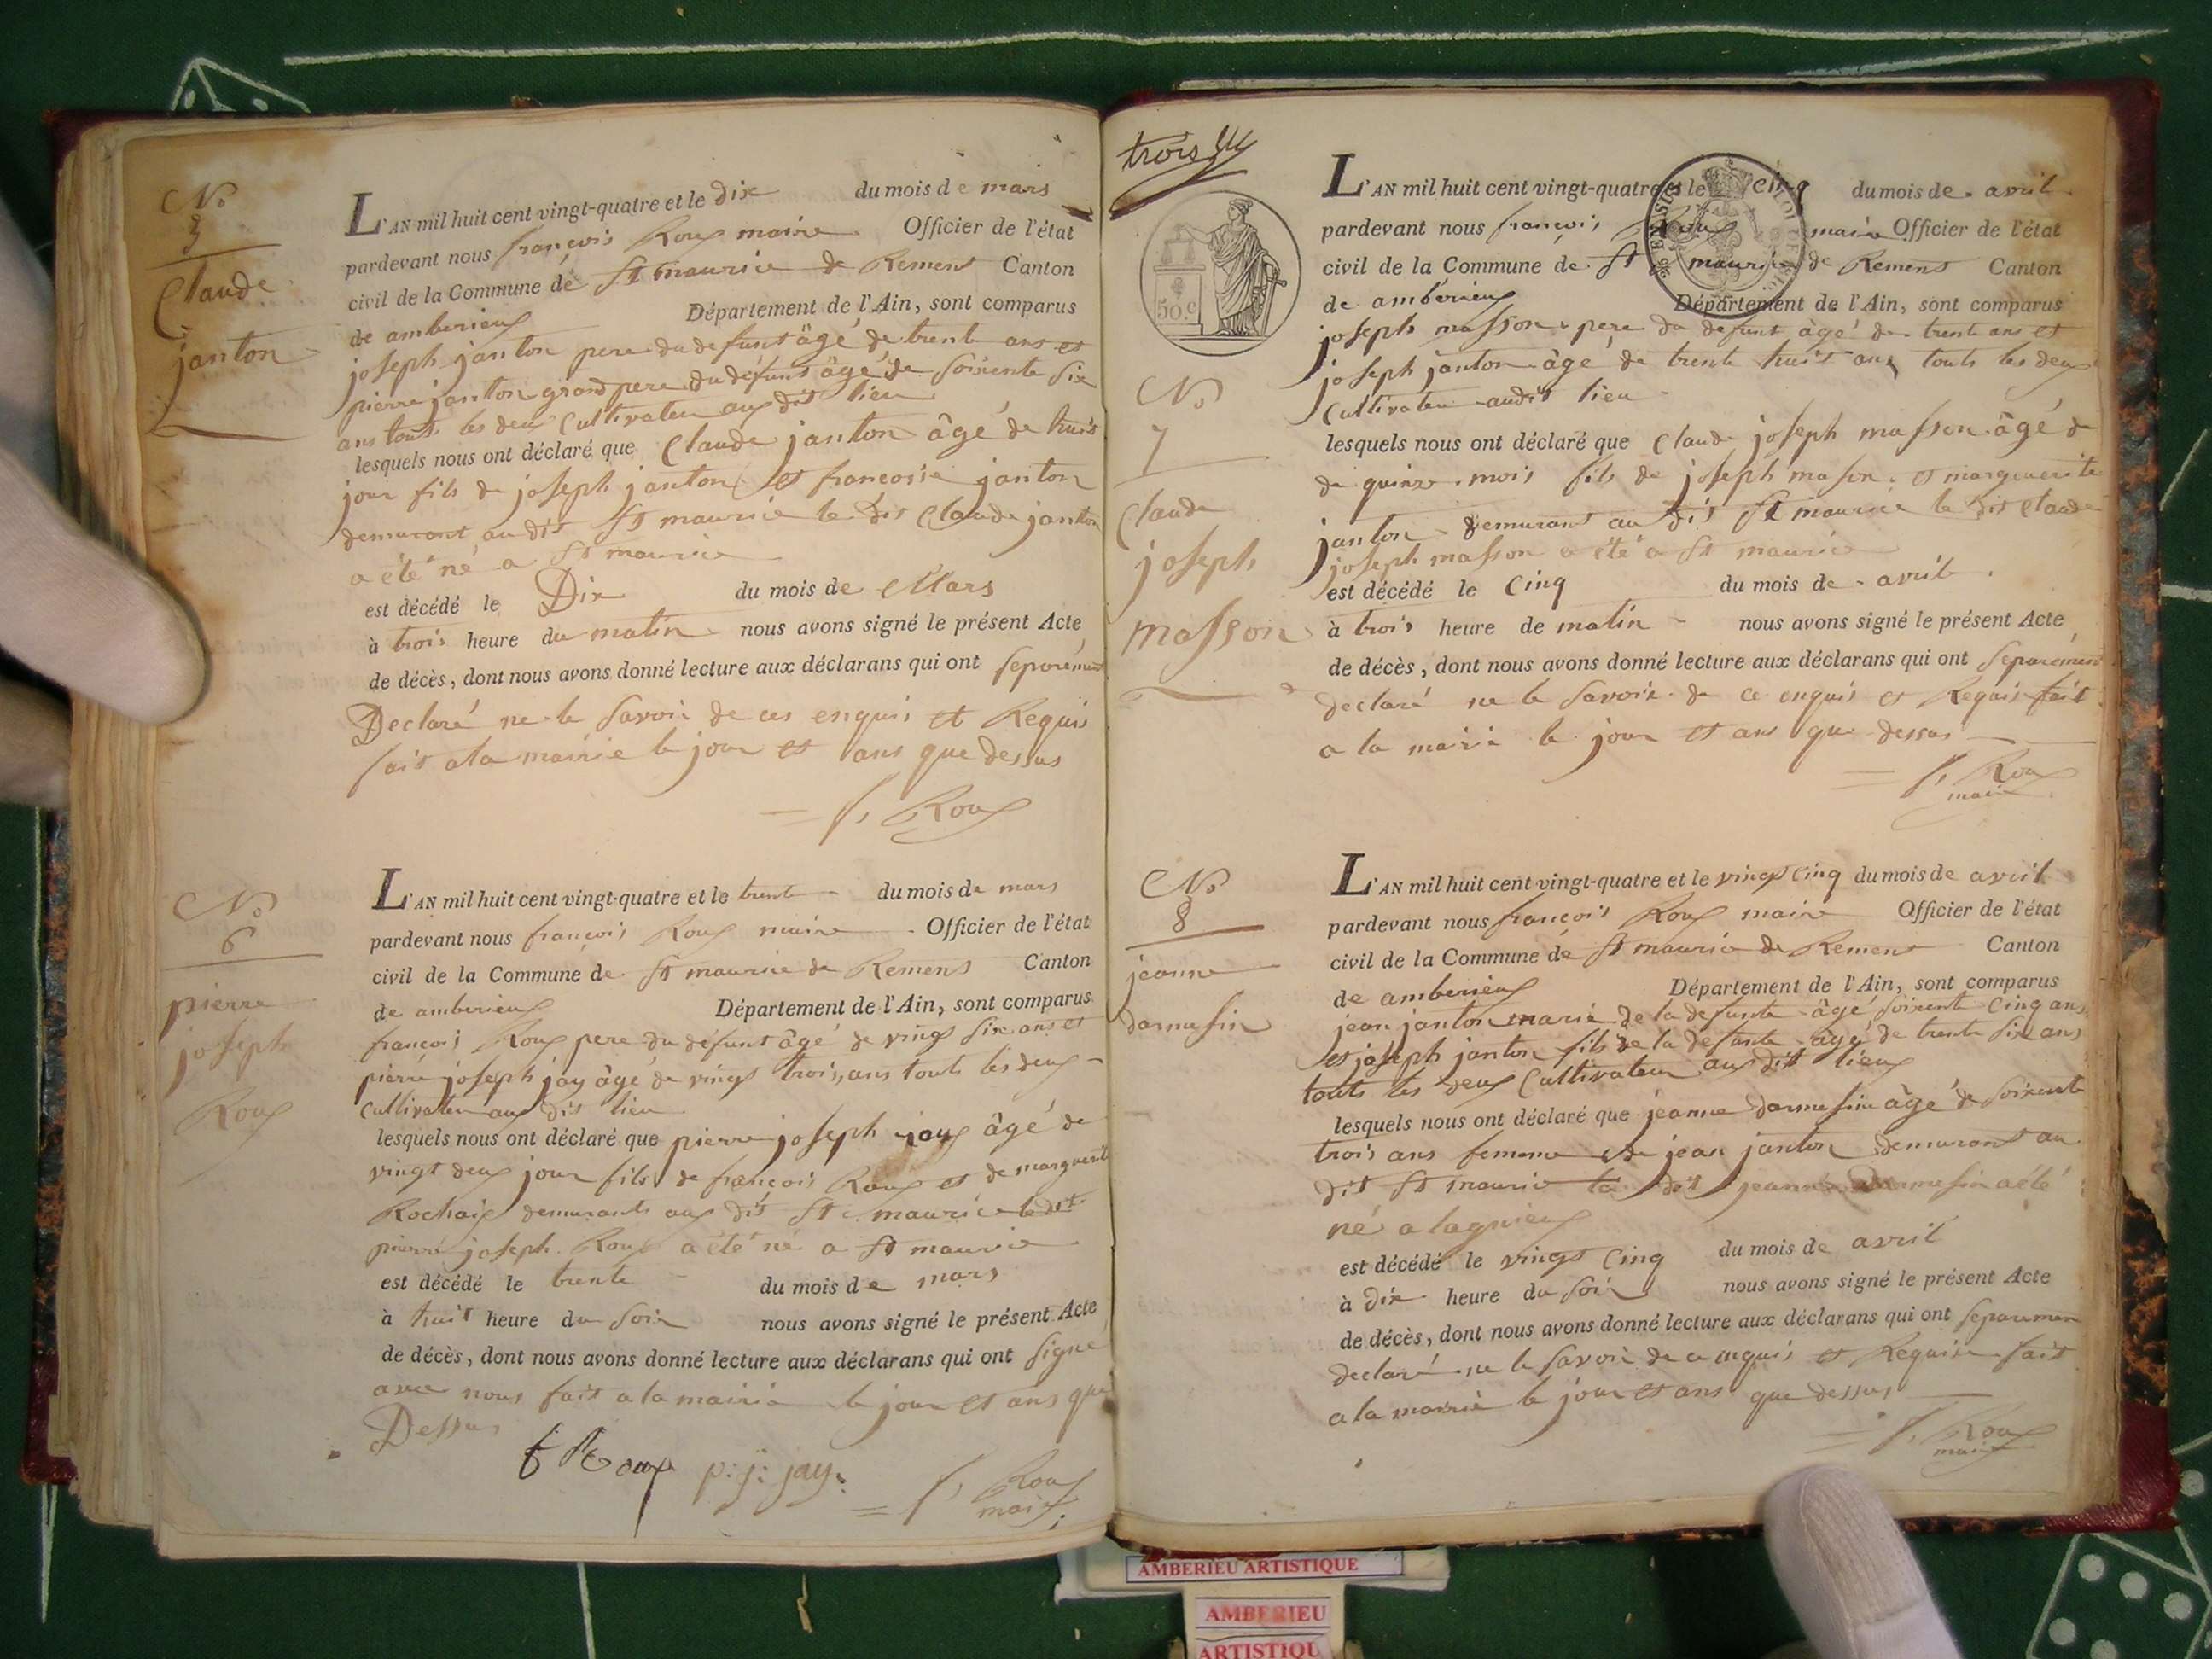 No
5
Claude
janton
L'AN mil huit cent vingt-quatre et le dix du mois de mars
pardevant nous françois Roux maire Officier de l'état
civil de la Commune de St maurice de Remens Canton
de amberieux Département de l'Ain, sont comparus
joseph janton pere du defunt âgé de trente ans et
pierre janton grand pere du défunt âgé de soixente six
ans touts les deux Cultivateu aux dit lieu
lesquels nous ont déclaré que Claude janton âgé de huit
jour fils de joseph janton et francoise janton
demurant au dit St maurice le dit Claude janton
a été né a St maurice
est décédé le Dix du mois de Mars
à trois heure du matin nous avons signé le présent Acte
de décès, dont nous avons donné lecture aux déclarans qui ont séparément
Declaré ne le savoir de ces enquis et Requis
fait a la mairie le jour et ans que dessus
f. Roux
No
6
pierre
joseph
Roux
L'AN mil huit cent vingt-quatre et le trente du mois de mars
pardevant nous françois Roux maire Officier de l'état
civil de la Commune de St maurice de Remens Canton
de amberieux Département de l'Ain, sont comparus
francois Roux pere du défunt âgé de vingt six ans et
pierre joseph jay âgé de vingt trois ans touts les deux
Cultivateu aux dit lieu
lesquels nous ont déclaré que pierre joseph âgé de
vingt deux jour fils de françois Roux et de marguerite
Rochaix demurants aux dit St maurice le dit
pierre joseph Roux a été né a St maurice
est décédé le trente du mois de mars
à huit heure du soir nous avons signé le présent Acte
de décès, dont nous avons donné lecture aux déclarans qui ont signé
avec nous fait a la mairie le jour et ans que
Dessus
f Roux p: j: jay.
f. Roux
maire
trois
50.c
No
7
Claude
joseph
masson
L'AN mil huit cent vingt-quatre et le cinq du mois de avril
pardevant nous françois Roux maire Officier de l'état
civil de la Commune de St maurice de Remens Canton
de amberieux Département de l'Ain, sont comparus
joseph masson pere du defunt âgé de trente ans et
joseph janton âgé de trente huit ans touts les deux
Cultivateu audit lieu
lesquels nous ont déclaré que Claude joseph masson âgé de
de quinze mois fils de joseph mason et marguerite
janton demurant au dit St maurice le dit Claude
joseph masson a été a St maurice
est décédé le Cinq du mois de avril
à trois heure de matin nous avons signé le présent Acte
de décès, dont nous avons donné lecture aux déclarans qui ont séparemen
declaré ne le savoir de ce enquis et Requis fait
a la mairie le jour et ans que dessus
f. Roux
maire
No
8
jeanne
darmesin
L'AN mil huit cent vingt-quatre et le vingt Cinq du mois de avril
pardevant nous françois Roux maire Officier de l'état
civil de la Commune de St maurice de Remens Canton
de amberieux Département de l'Ain, sont comparus
jean janton marie de la defunte âgé soixente Cinq ans
et joseph janton fils de la défunte âgé de trente six ans
touts les deux Cultivateur aux dit lieux
lesquels nous ont déclaré que jeanne darmesin âgé de soixente
trois ans femme de jean janton demurant au
dit St maurice la dit jeanne Darmesin a été
né a lagnieux
est décédé le vingt Cinq du mois de avril
à dix heure du soir nous avons signé le présent Acte
de décès, dont nous avons donné lecture aux déclarans qui ont separemen
declaré ne le savoir de ce enquis et Requise fait
a la mairie le jour et ans que dessus
f. Roux
maire
AMBERIEU ARTISTIQUE
AMBERIEU
ARTISTIQU